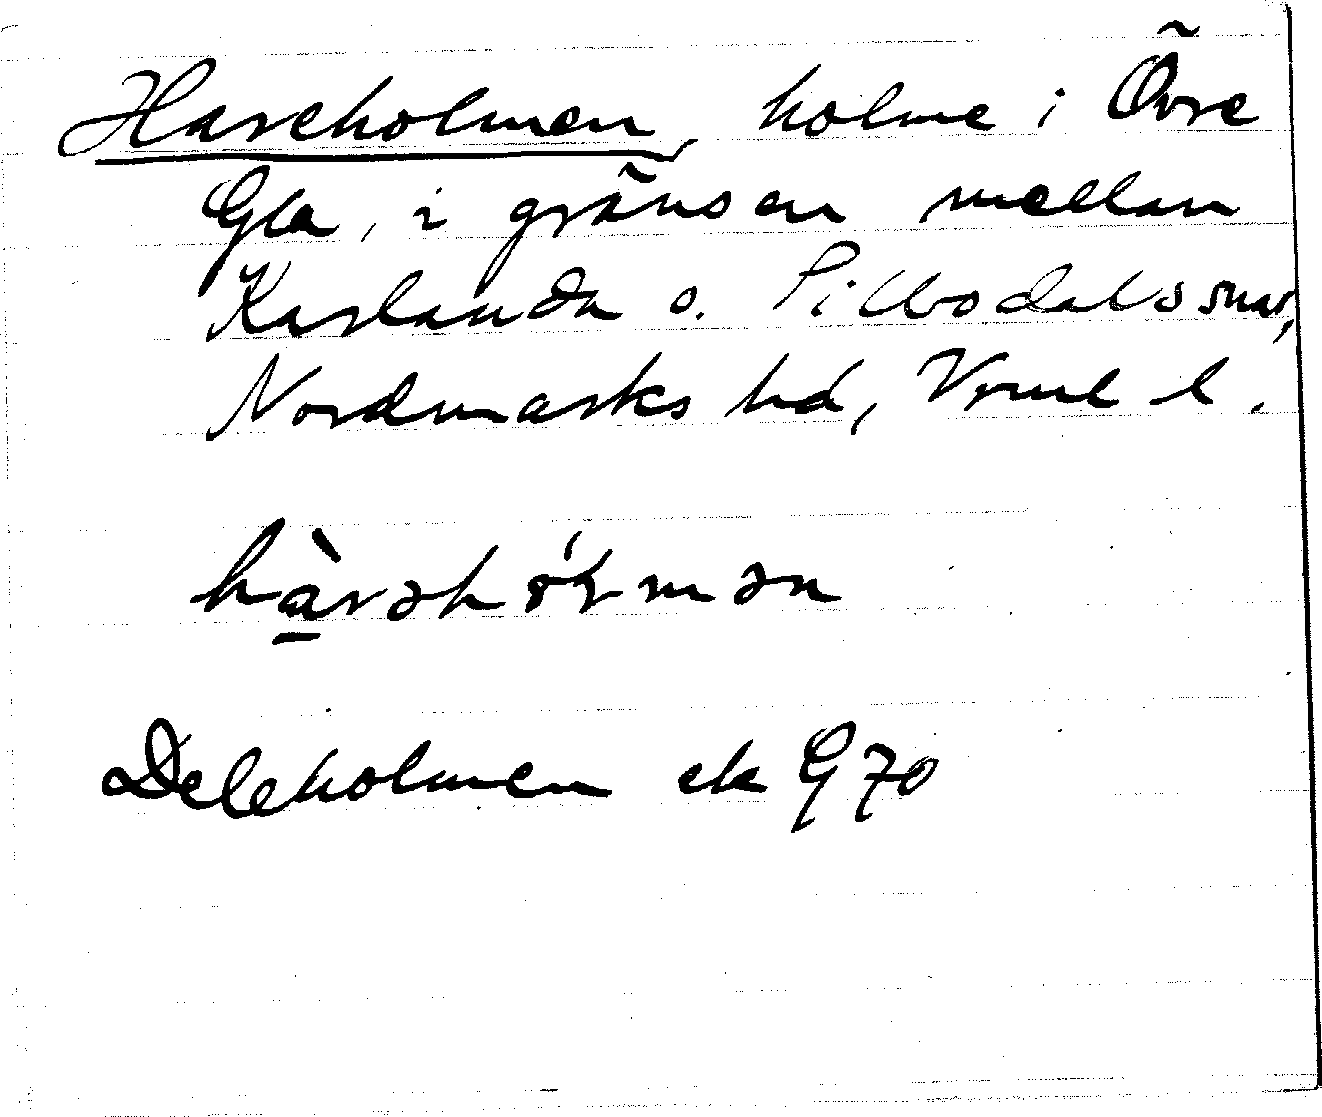 Hareholmen, holme i Övre
Gla, i gränsen mellan
Karlanda o. Silbodals snar,
Nordmarks hd, Vrml l.
Deleholmen ek G 70